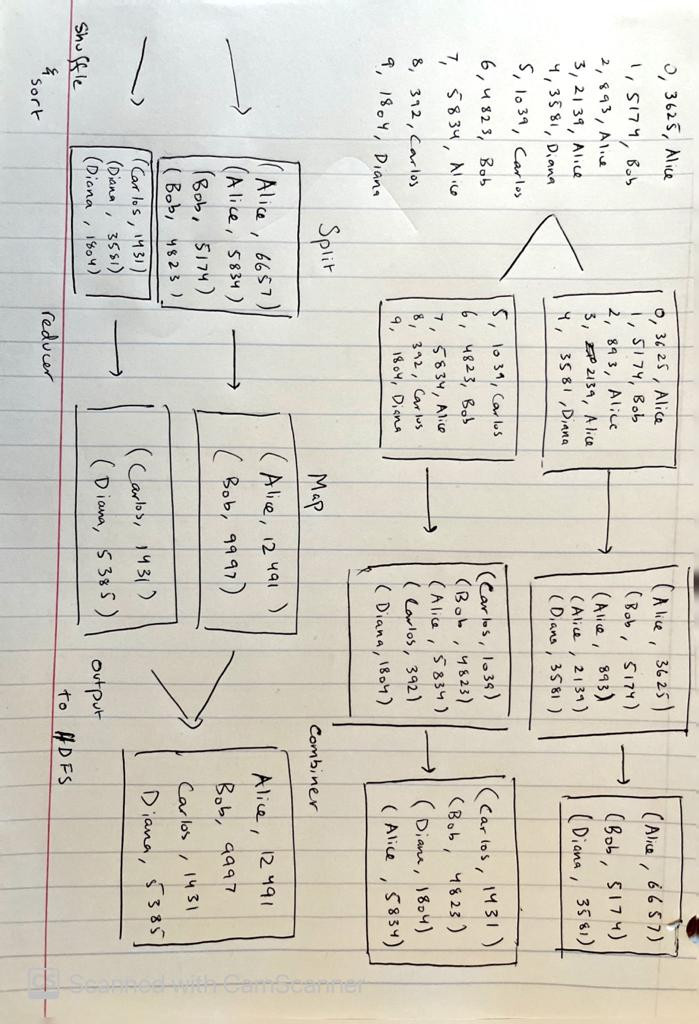 0, 3625, Alice
1, 5174, Bob
2, 893, Alice
3, 2139, Alice
4, 3581, Diana
5, 1039, Carlos
6, 4823, Bob
7, 5834, Alice
8, 392, Carlos
9, 1804, Diana
0, 3625, Alice
1, 5174, Bob
2, 893, Alice
3, 2139, Alice
4, 3581, Diana
5, 1039, Carlos
6, 4823, Bob
7, 5834, Alice
8, 392, Carlos
9, 1804, Diana
(Alice, 3625)
(Bob, 5174)
(Alice, 893)
(Alice, 2139)
(Diana, 3581)
(Carlos, 1039)
(Bob, 4823)
(Alice, 5834)
(Carlos, 392)
(Diana, 1804)
(Alice, 6657)
(Bob, 5174)
(Diana, 3581)
(Carlos, 1431)
(Bob, 4823)
(Diana, 1804)
(Alice, 5834)
Split
Map
Combiner
(Alice, 6657)
(Alice, 5834)
(Bob, 5174)
(Bob, 4823)
(Carlos, 1431)
(Diana, 3581)
(Diana, 1804)
(Alice, 12491)
(Bob, 9997)
(Carlos, 1431)
(Diana, 5385)
Alice, 12491
Bob, 9997
Carlos, 1431
Diana, 5385
Shuffle
& sort
reducer
output
to HDFS
CS Scanned with CamScanner